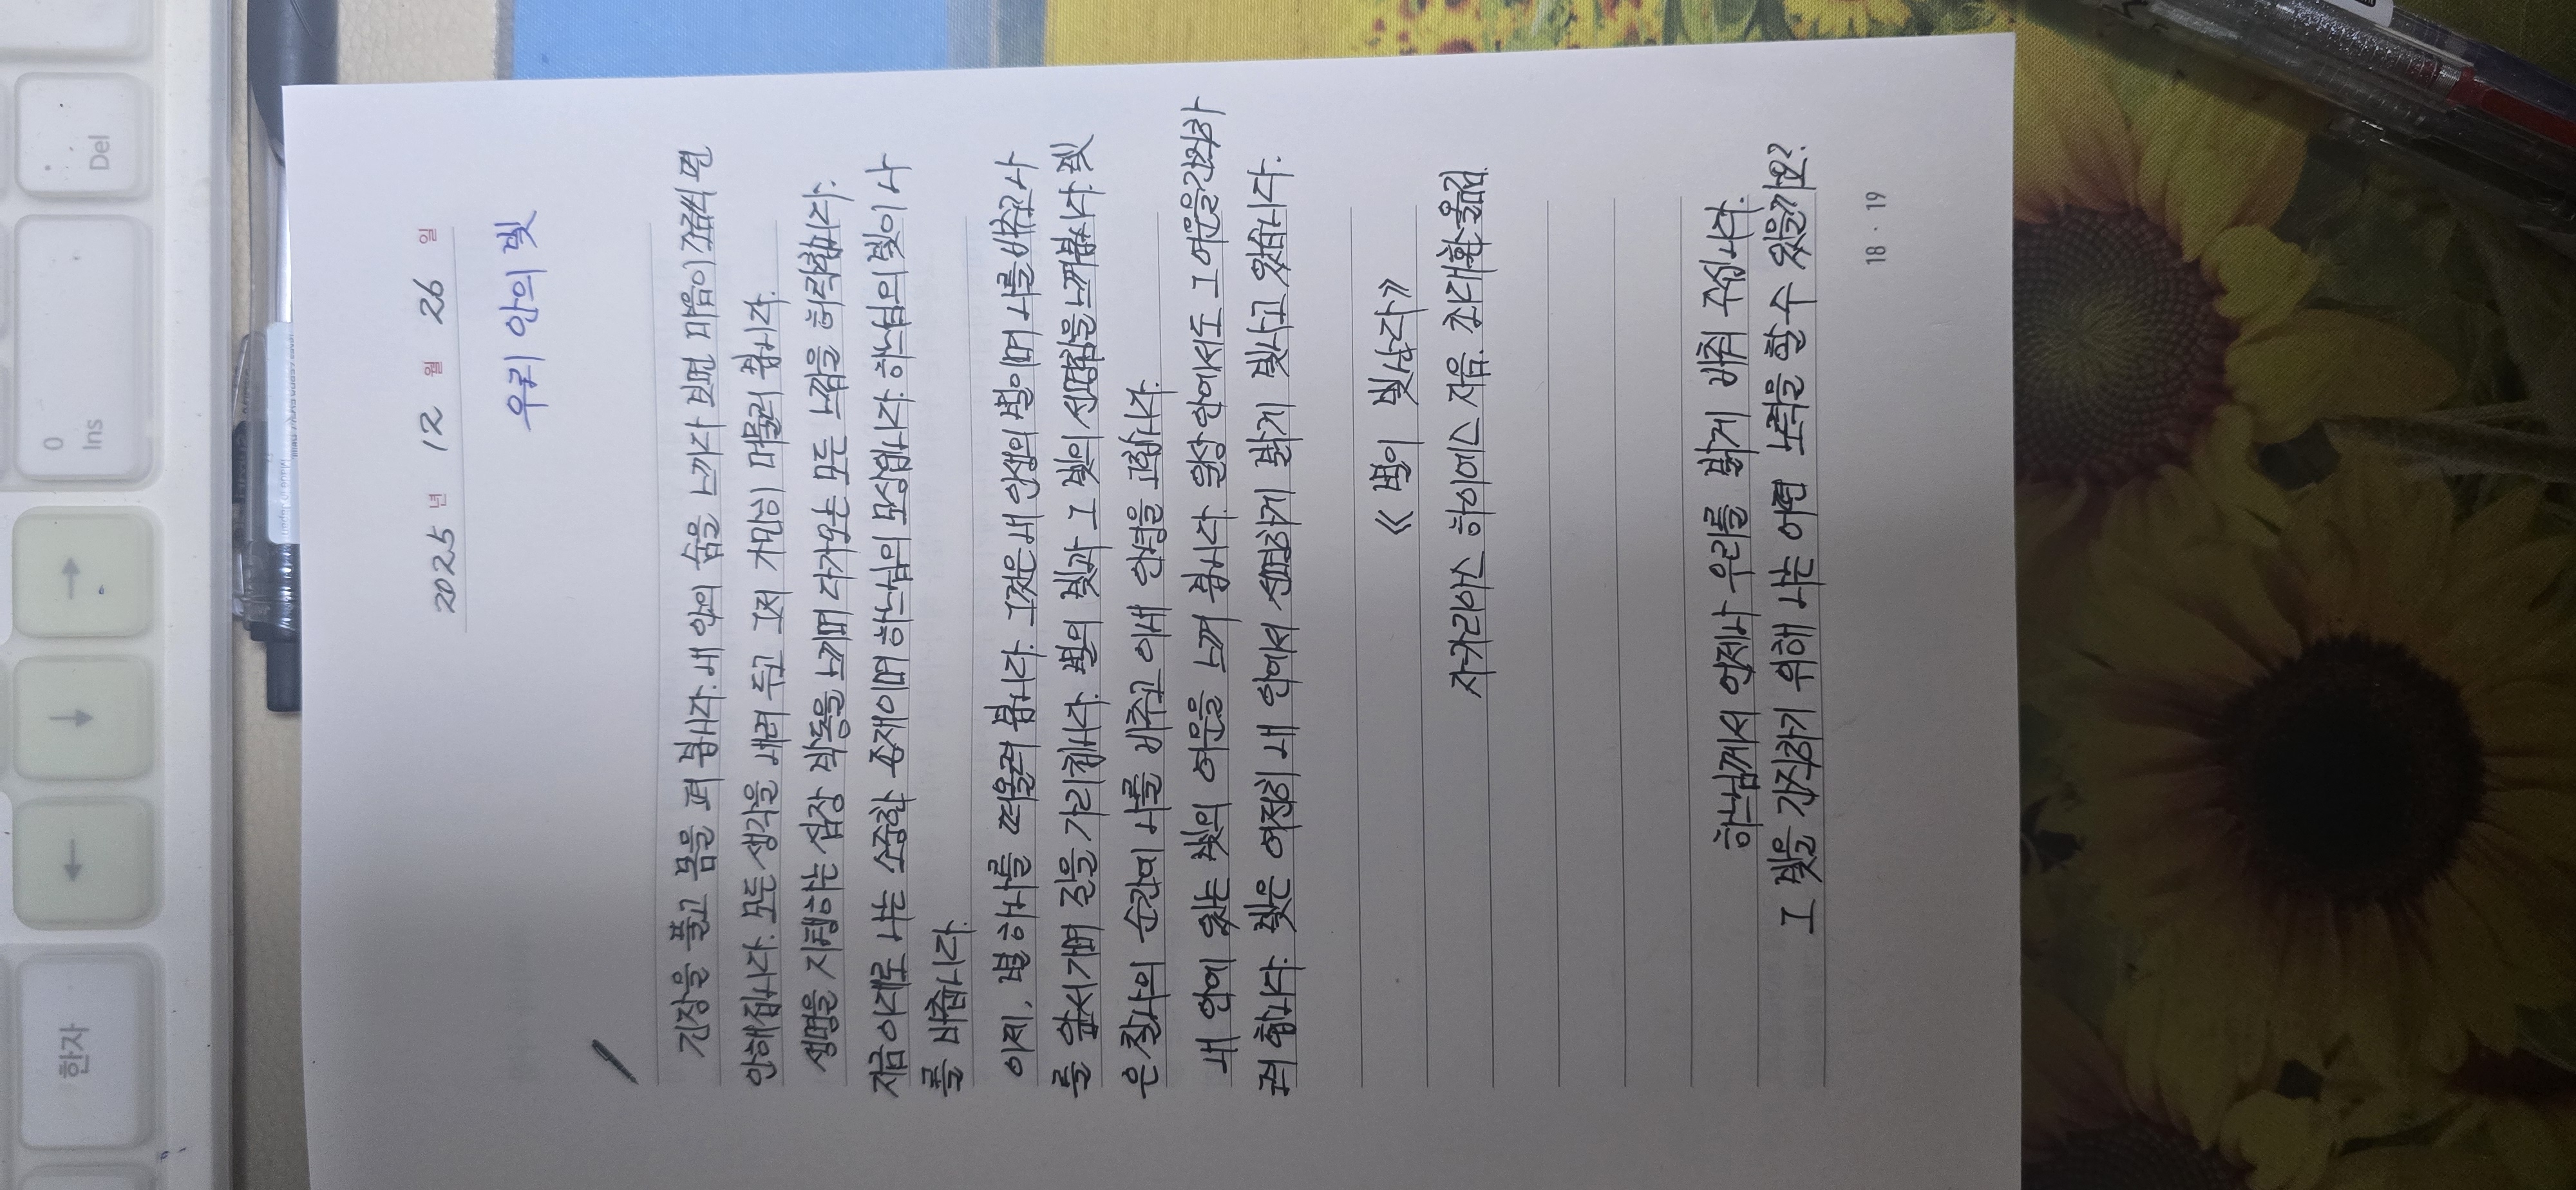 2025 년 12 월 26 일
우리 안의 빛
긴장을 풀고 몸을 펴 봅시다. 내 안의 숨을 느끼다 보면 마음이 그윽히 편
안해집니다. 모든 생각을 내려 두고 그저 가만히 머물러 봅시다.
생명을 지탱하는 심장 박동을 느끼며 다가오는 모든 느낌을 허락합니다.
지금 이대로 나는 소중한 존재이며 하느님의 모상입니다. 하느님의 빛이 나
를 비춥니다.
이제, 별 하나를 떠올려 봅니다. 그것은 내 인생의 별이며 나를 비추고 나
를 앞서가며 길을 가리킵니다. 별의 빛과 그 빛의 선명함을 느껴봅니다. 빛
은 찰나의 순간에 나를 비추고 이내 안녕을 고합니다.
내 안에 있는 빛의 여운을 느껴 봅니다. 일상 안에서도 그 여운을 간직하
려 합니다. 빛은 여전히 내 안에서 선명하게 밝게 빛나고 있습니다.
《 별이 빛난다》
자카리아스 하이에스 지음. 최대환 옮김.
하느님께서 언제나 우리를 밝게 비춰 주십니다.
그 빛을 간직하기 위해 나는 어떤 노력을 할 수 있을까요?
18 · 19
Del
0
Ins
→
↓
←
한자